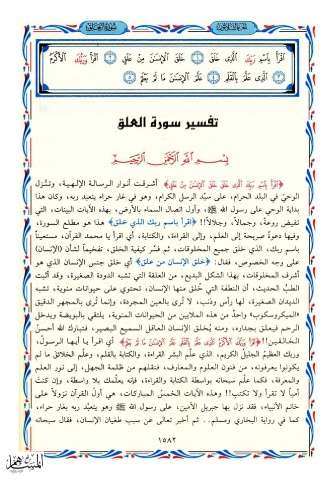 سورة العلق
اقرأ باسم ربك الذي خلق ١ خلق الإنسن من علق ٢ اقرأ وربك الأكرم
٣ الذي علم بالقلم ٤ علم الإنسن ما لم يعلم ٥
تفسير سورة العلق
بسم الله الرحمن الرحيم
﴿اقرأ باسم ربك الذي خلق خلق الإنسن من علق﴾ أشرقت أنوار الرسالة الإلهية، وتنزل
الوحي في البلد الحرام، على سيد الرسل الكرام، وهو في غار حراء يتعبد ربه، وكان هذا
بداية الوحي على رسول الله ﷺ وأول اتصال السماء بالأرض، بهذه الآيات البينات، التي
تفيض روعة، وجمالا، وجلالا!! ﴿اقرأ باسم ربك الذي خلق﴾ هذا هو مطلع السورة،
وفيها دعوة صريحة إلى العلم، وإلى القراءة، والكتابة، أي اقرأ يا محمد القرآن، مستعينا
باسم ربك، الذي خلق جميع المخلوقات، ثم فسر كيفية الخلق، تفخيما لشأن (الإنسان)
على وجه الخصوص، فقال: ﴿خلق الإنسان من علق﴾ أي خلق جنس الإنسان الذي هو
أشرف المخلوقات، بهذا الشكل البديع، من العلقة التي تشبه الدودة الصغيرة، وقد أثبت
الطب الحديث، أن النطفة التي خلق منها الإنسان، تحتوي على حيوانات منوية، تشبه
الديدان الصغيرة، لها رأس وذنب، لا ترى بالعين المجردة، وإنما ترى بالمجهر الدقيق
«الميكروسكوب» واحد من هذه الملايين من الحيوانات المنوية، يلتقي بالبويضة ويدخل
الرحم فيعلق بجداره، ومنه يخلق الإنسان العاقل السميع البصير، فتبارك الله أحسن
الخالقين!! ﴿اقرأ وربك الأكرم الذي علم بالقلم علم الإنسن ما لم يعلم﴾ أي اقرأ يا أيها الرسول،
وربك العظيم الجليل الكريم، الذي علم البشر القراءة، والكتابة بالقلم، وعلم الخلائق ما لم
يكونوا يعرفونه، من فنون العلوم والمعارف، فنقلهم من ظلمة الجهل، إلى نور العلم
والمعرفة، فكما علم سبحانه بواسطة الكتابة والقراءة، فإنه يعلمك بلا واسطة، وإن كنت
أميا لا تقرأ ولا تكتب!! وهذه الآيات الخمس المباركات، هي أول القرآن نزولا على
خاتم الأنبياء، فقد نزل بها جبريل الأمين، على رسول الله ﷺ وهو يتعبد ربه بغار حراء،
كما في رواية البخاري ومسلم.. ثم أخبر تعالى عن سبب طغيان الإنسان، فقال سبحانه
١٥٨٢